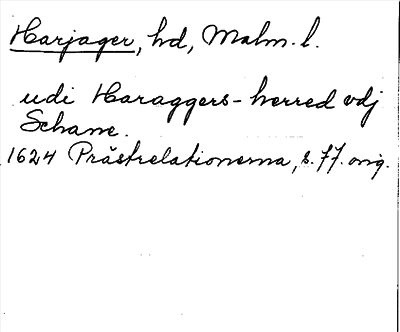 Harjager, hd, Malm. l.
udi Haraggers-herred vdj
Schane.
1624 Prästrelationerna, s. 77. orig.